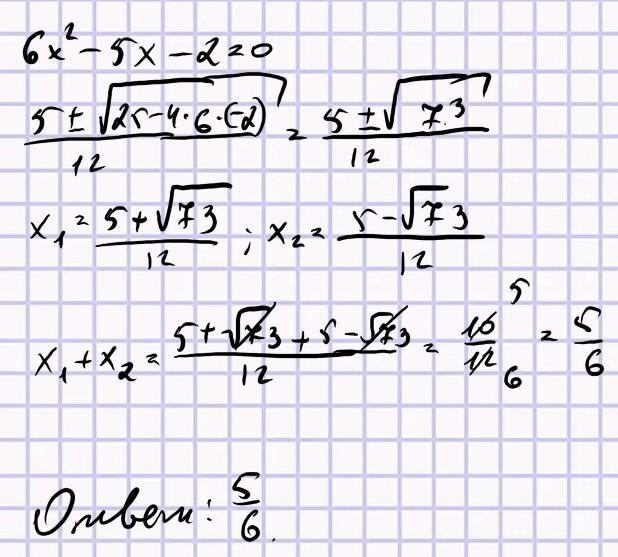 6x² - 5x - 2 = 0
(5 ± √(25 - 4·6·(-2)))/12 = (5 ± √73)/12
x₁ = (5 + √73)/12 ; x₂ = (5 - √73)/12
x₁ + x₂ = (5 + √73 + 5 - √73)/12 = 10/12 5 6 = 5/6
Ответ: 5/6.